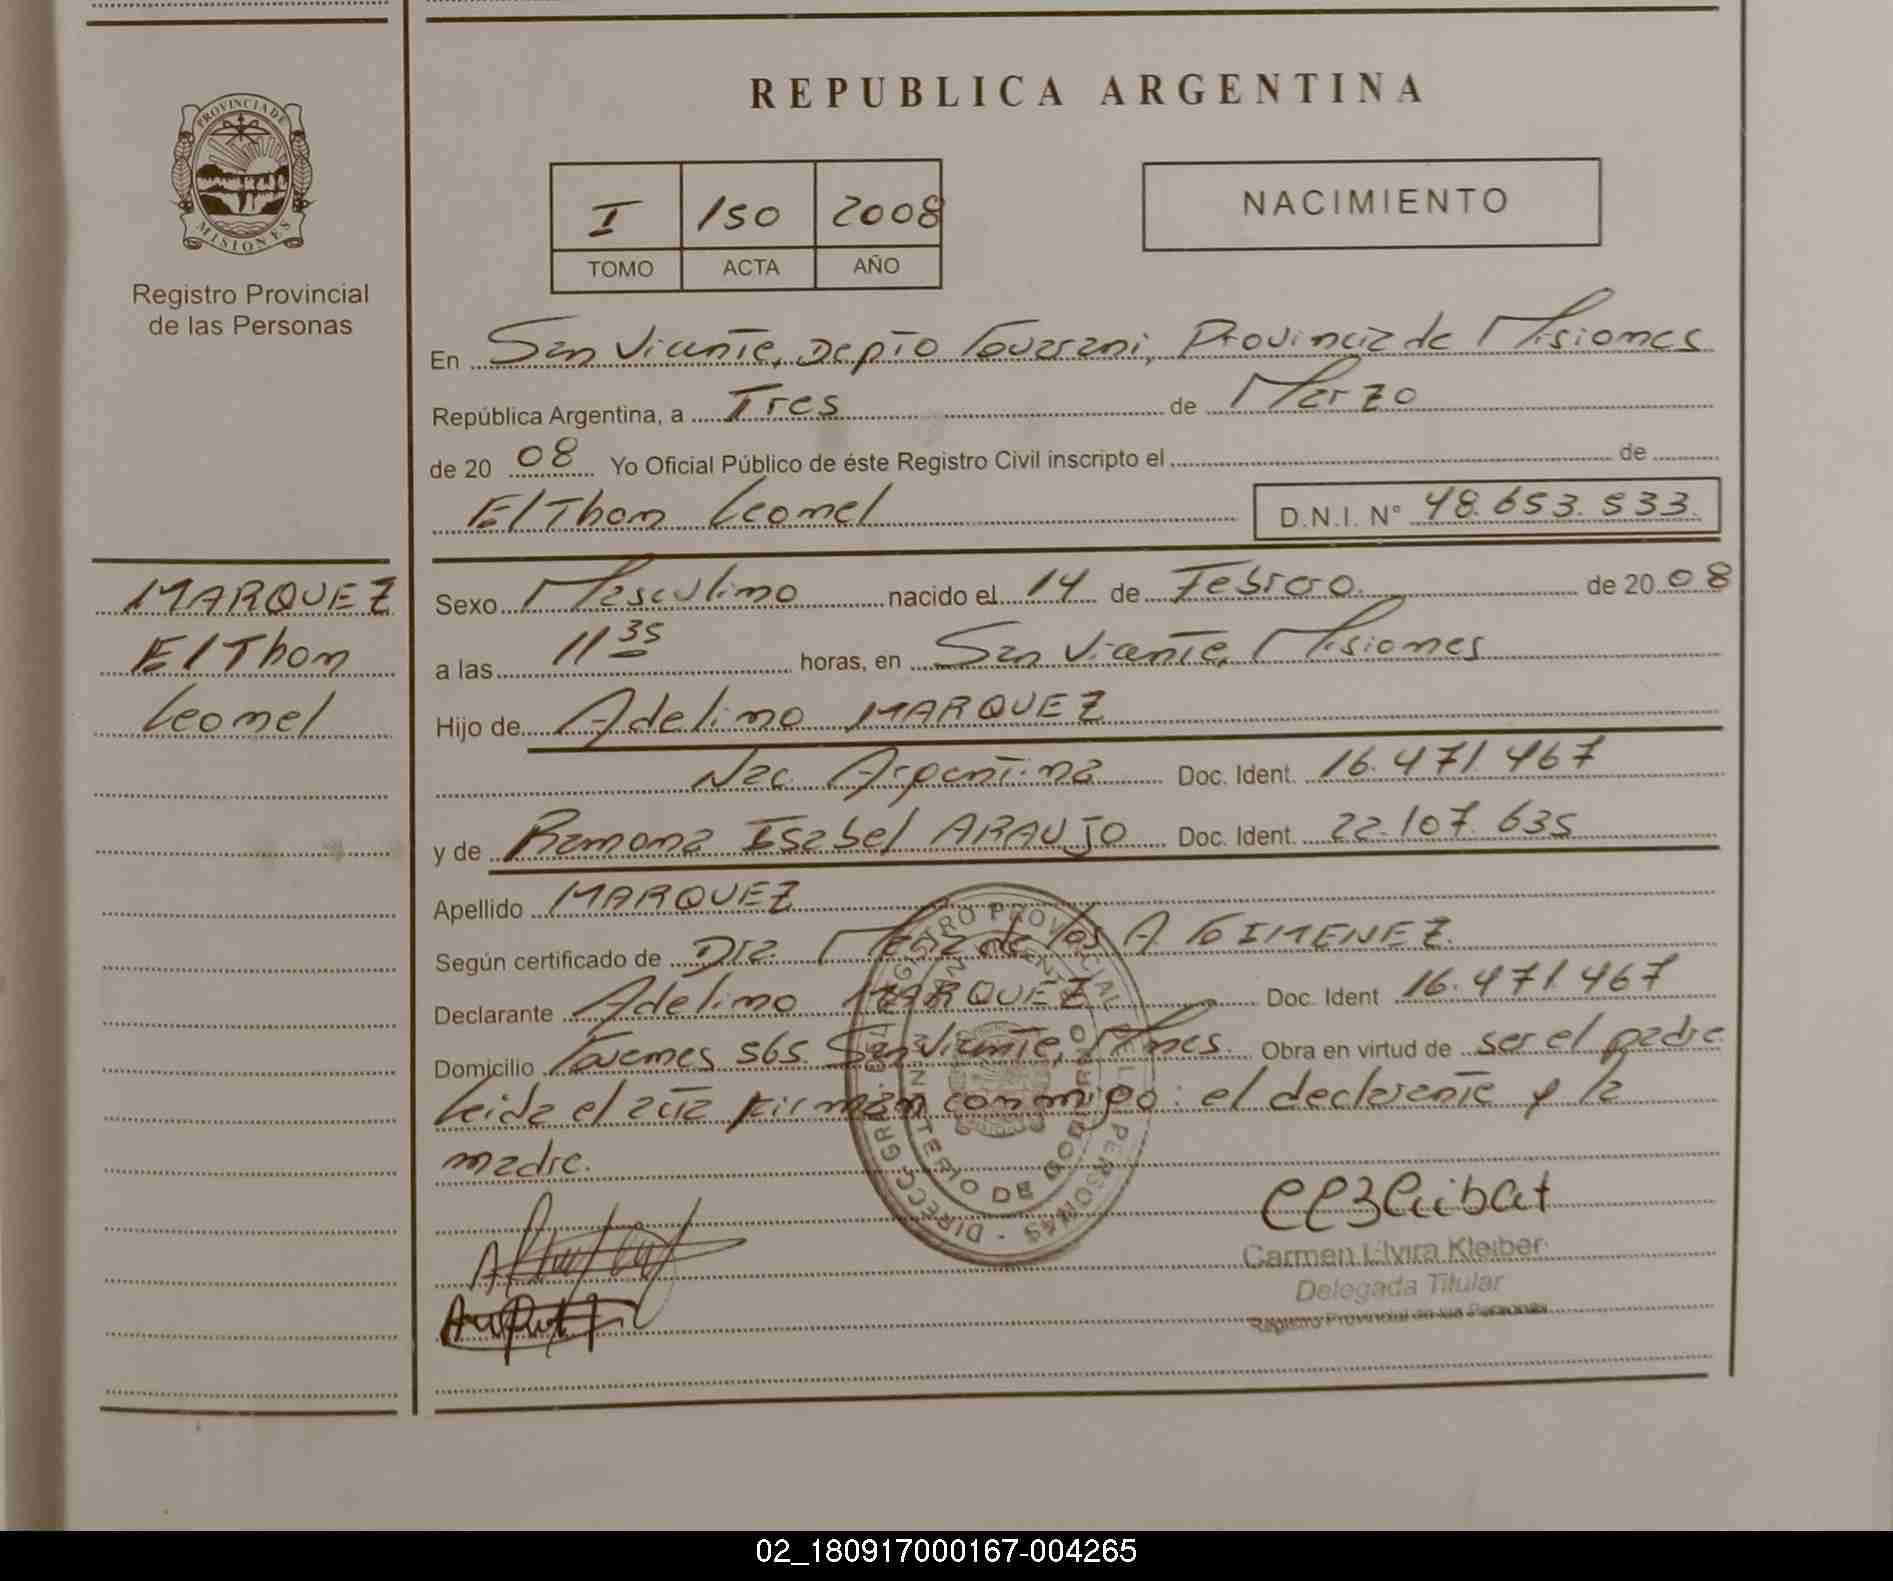 REPUBLICA ARGENTINA
PROVINCIA DE
MISIONES
Registro Provincial
de las Personas
I 150 2008
TOMO ACTA AÑO
NACIMIENTO
En San Vicente, Depto Guarani, Provincia de Misiones
República Argentina, a Tres de Marzo
de 20 08 Yo Oficial Público de éste Registro Civil inscripto el de
ElThon Leonel D.N.I. N° 48.653.533.
MARQUEZ
ElThon
Leonel
Sexo Masculino nacido el 14 de Febrero. de 20 08
a las 11 35 horas, en San Vicente, Misiones
Hijo de Adelino MARQUEZ
Nac. Argentina Doc. Ident. 16.471.467
y de Ramona Isabel ARAUJO Doc. Ident. 22.107.635
Apellido MARQUEZ
Según certificado de Dra. Maria de los A. GIMENEZ.
Declarante Adelino MARQUEZ Doc. Ident 16.471.467
Domicilio 565. San Vicente, Mnes. Obra en virtud de ser el padre
Leida el acta firman conmigo: el declarante y la
madre.
Carmen Elvira Kleiber
Delegada Titular
Registro Provincial de las Personas
02_180917000167-004265